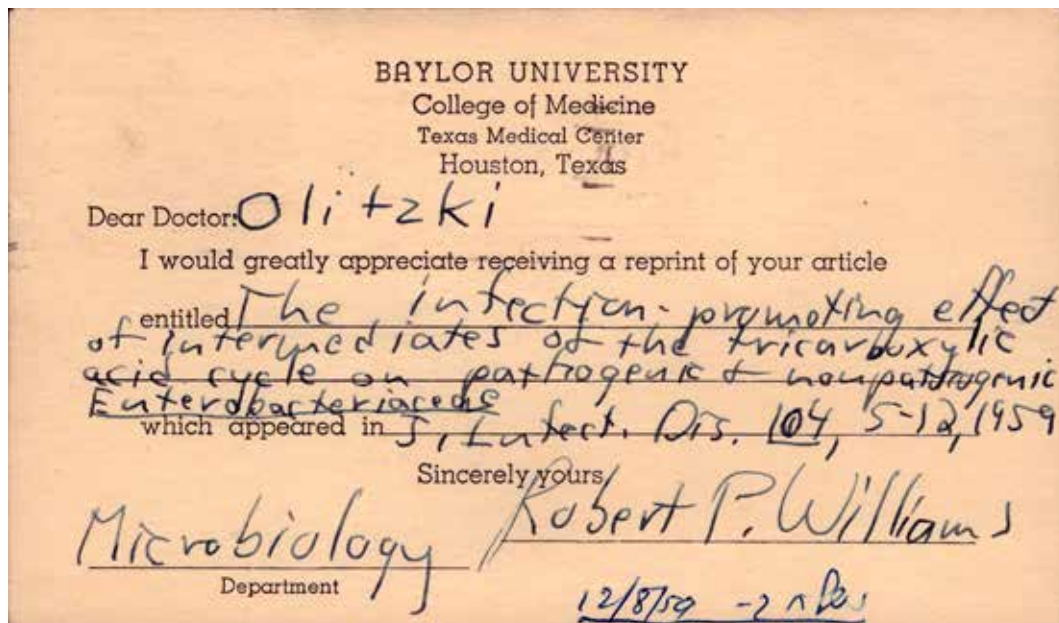 BAYLOR UNIVERSITY
College of Medicine
Texas Medical Center
Houston, Texas
Dear Doctor: Olitzki
I would greatly appreciate receiving a reprint of your article
entitled The infection-promoting effect
of intermediates of the tricarboxylic
acid cycle on pathogenic & nonpathogenic
Enterobacteriaceae
which appeared in J. Infect. Dis. 104, 5-12, 1959
Sincerely yours,
Microbiology Robert P. Williams
Department
12/8/59 -2